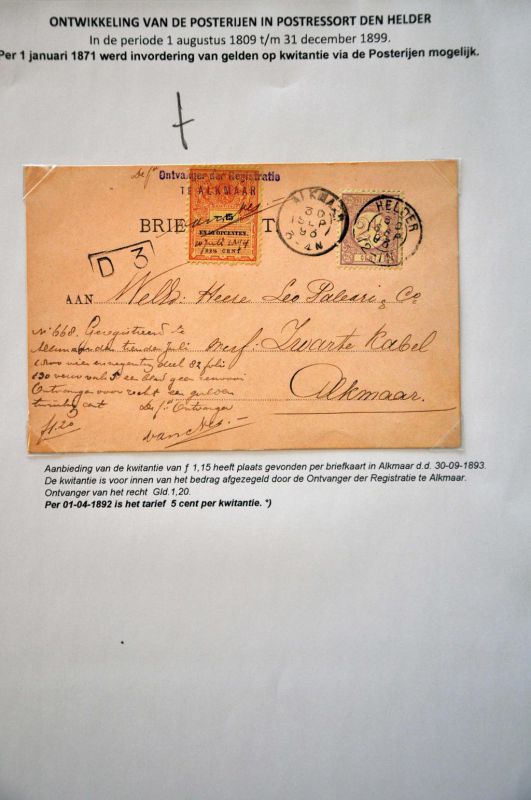 ONTWIKKELING VAN DE POSTERIJEN IN POSTRESSORT DEN HELDER
In de periode 1 augustus 1809 t/m 31 december 1899.
Per 1 januari 1871 werd invordering van gelden op kwitantie via de Posterijen mogelijk.
De
Ontvanger der Registratie
TE ALKMAAR
BRIE T
ALKMAAR
30
SEP
93
4N
HELDER
93
EN 38 OPCENTEN
CENT
D 3
AAN Weled. Heere Leo Paleari & Co
No 668. Geregistreerd te
Alkmaar den tienden Juli
deel 82 folio
130 een blad geen renvooi
Ontvangen voor recht een gulden
twintig cent De Ontvanger
f1.20 van Nes.
Zwarte Kabel
Alkmaar.
Aanbieding van de kwitantie van ƒ 1,15 heeft plaats gevonden per briefkaart in Alkmaar d.d. 30-09-1893.
De kwitantie is voor innen van het bedrag afgezegeld door de Ontvanger der Registratie te Alkmaar.
Ontvanger van het recht Gld.1,20.
Per 01-04-1892 is het tarief 5 cent per kwitantie. *)